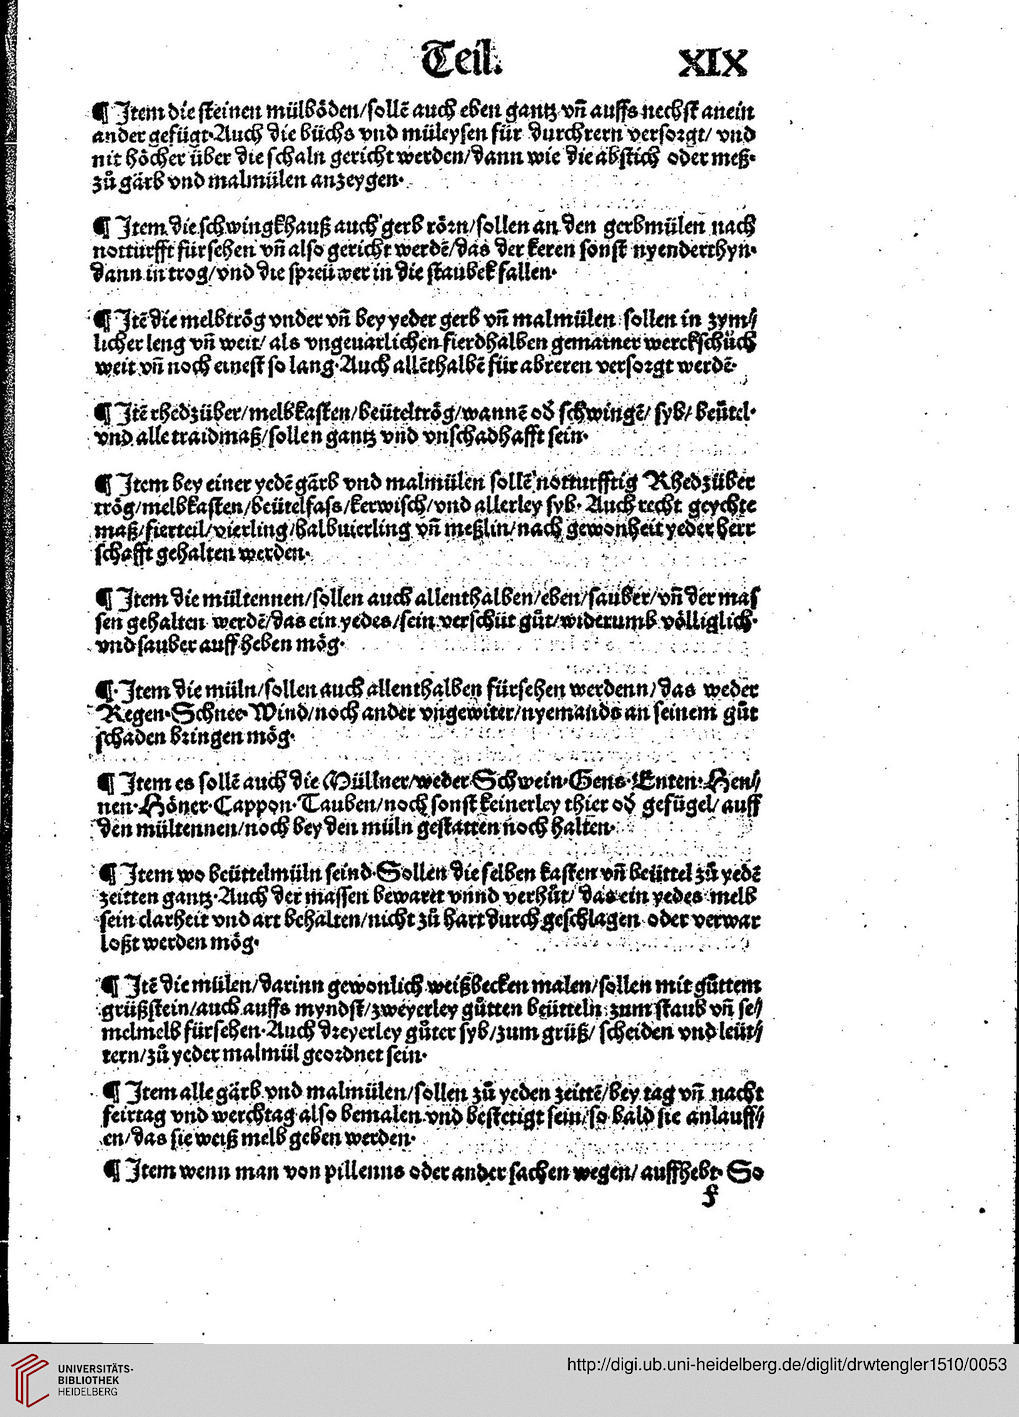 Teil. XIX
¶ Item die steinen mülböden/sollē auch eben gantz vn̄ auffs nechst anein
ander gefügt·Auch die büchs vnd müleysen für durchrern versorgt/ vnd
nit höcher über die schaln gericht werden/dann wie die abstich oder meß·
zů gärb vnd malmülen anzeygen·
¶ Item die schwingkhauß auch gerb rörn/sollen an den gerbmülen nach
notturfft fürsehen vn̄ also gericht werdē/das der keren sonst nyenderthyn·
dann in trog/vnd die spreüwer in die staubek fallen·
¶ Itē die melbtrög vnder vn̄ bey yeder gerb vn̄ malmülen sollen in zym//
licher leng vn̄ weit/ als vngeuarlichen fierdhalben gemainer werckschůch
weit vn̄ noch einest so lang·Auch allēthalbē für abreren versorgt werdē·
¶ Itē rhedzüber/melbkasten/beüteltrög/wannē od̄ schwingē/ syb/ beütel·
vnd alle traidmaß/sollen gantz vnd vnschadhafft sein·
¶ Item bey einer yedē gärb vnd malmülen sollē notturfftig Rhedzüber
trög/melbkasten/beütelfass/kerwisch/vnd allerley syb· Auch recht geychte
maß/fierteil/vierling/halbuierling vn̄ meßlin/nach gewonheit yeder herr
schafft gehalten werden·
¶ Item die mültennen/sollen auch allenthalben/eben/sauber/vn̄ der mas
sen gehalten werdē/das ein yedes/sein verschüt gůt/widerumb völliglich·
vnd sauber auff heben mög·
¶ Item die müln/sollen auch allenthalben fürsehen werdenn/das weder
Regen·Schnee·Wind/noch ander vngewiter/nyemands an seinem gůt
schaden bringen mög·
¶ Item es sollē auch die Müllner/weder Schwein·Gens·Enten·Hen//
nen·Höner·Cappon·Tauben/noch sonst keinerley thier od̄ gefügel/auff
den mültennen/noch bey den müln gestatten noch halten·
¶ Item wo beüttelmüln seind·Sollen die selben kasten vn̄ beüttel zů yedē
zeitten gantz·Auch der massen bewaret vnnd verhůt/ das ein yedes melb
sein clarheit vnd art behalten/nicht zů hart durch geschlagen oder verwar
loßt werden mög·
¶ Itē die mülen/darinn gewonlich weißbecken malen/sollen mit gůttem
grüßstein/auch auffs myndst/zweyerley gůtten beütteln zum staub vn̄ se//
melmelb fürsehen·Auch dreyerley gůter syb/zum grüß/ scheiden vnd leüt//
tern/zů yeder malmül geordnet sein·
¶ Item alle gärb vnd malmülen/sollen zů yeden zeittē/bey tag vn̄ nacht
feirtag vnd werchtag also bemalen vnd bestetigt sein/so bald sie anlauff//
en/das sie weiß melb geben werden·
¶ Item wenn man von pillenns oder ander sachen wegen/ auffhebt· So
f
UNIVERSITÄTS-
BIBLIOTHEK
HEIDELBERG
http://digi.ub.uni-heidelberg.de/diglit/drwtengler1510/0053